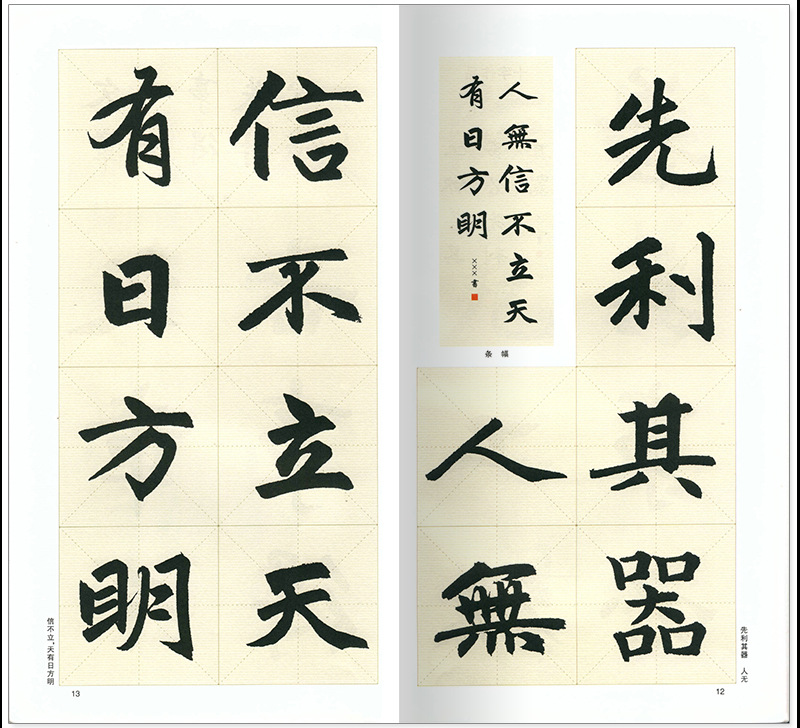 先利其器
人無
人無信不立天
有日方明
×××書
条幅
先利其器 人无
12
信不立天
有日方明
信不立，天有日方明
13